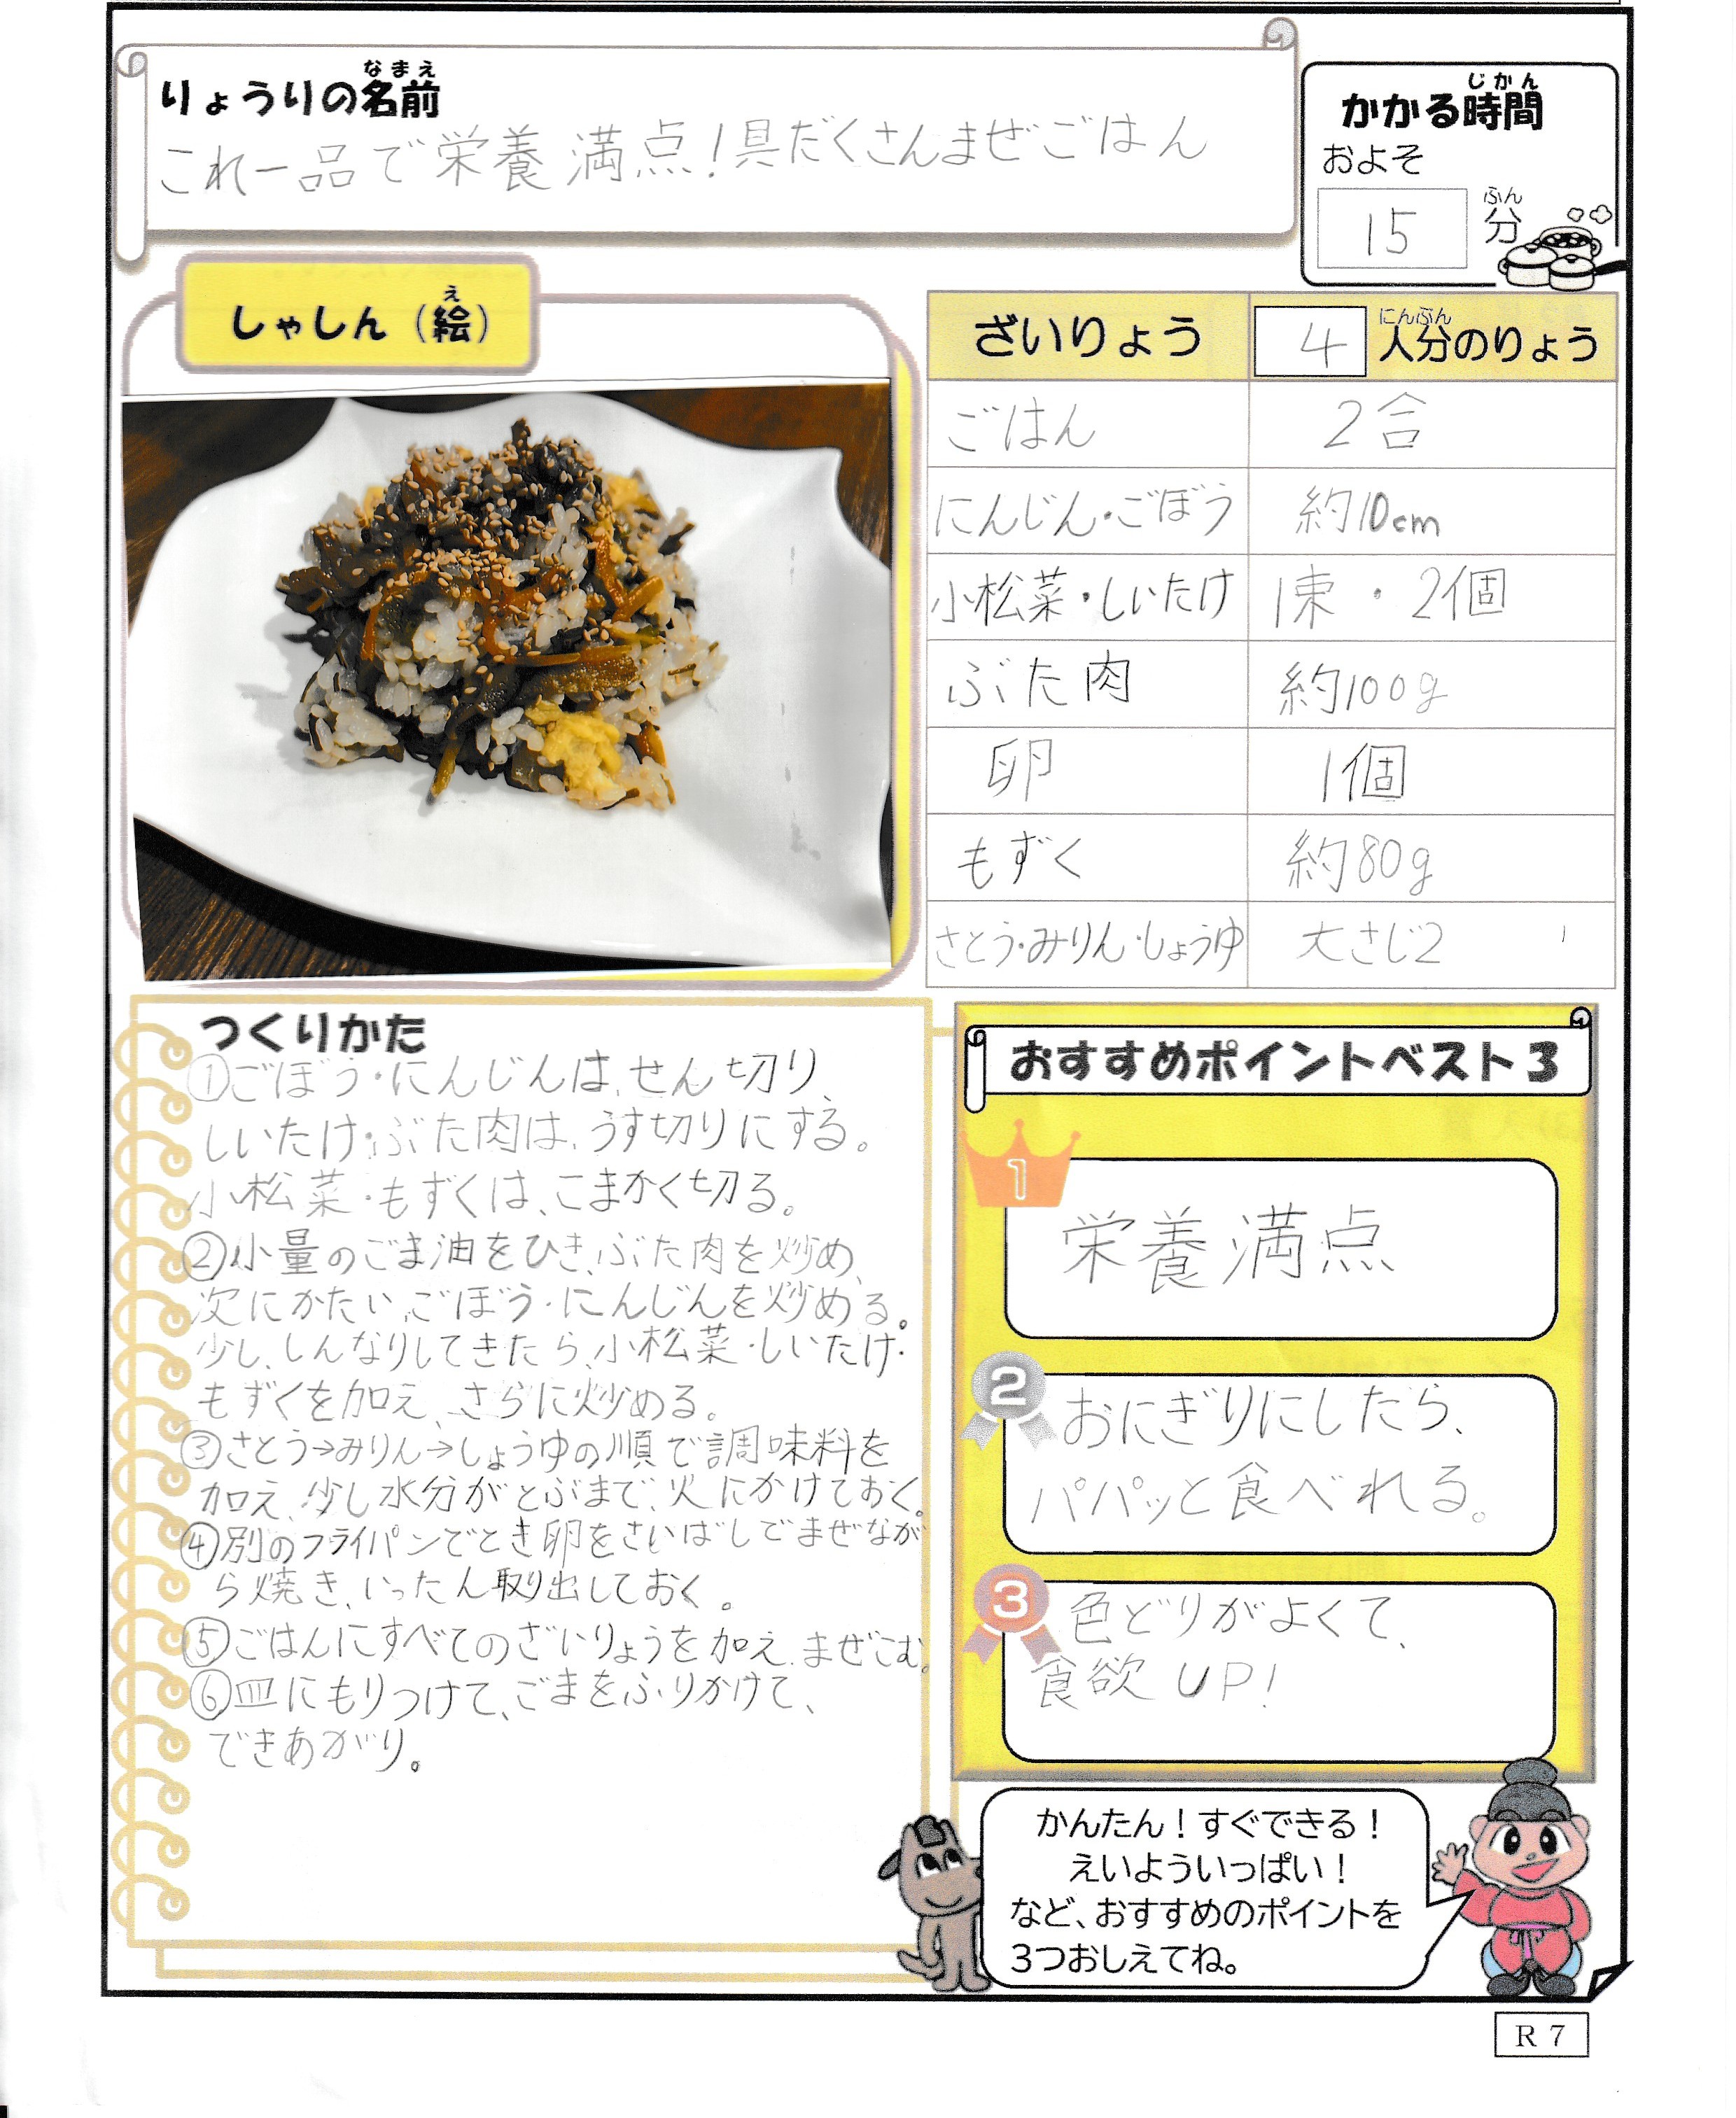 りょうりの名前
なまえ
これ一品で栄養満点！具だくさんまぜごはん
かかる時間
じかん
およそ
15 分
ふん
しゃしん（絵）
え
ざいりょう 4 人分のりょう
にんぶん
ごはん 2合
にんじん・ごぼう 約10cm
小松菜・しいたけ 1束・2個
ぶた肉 約100g
卵 1個
もずく 約80g
さとう・みりん・しょうゆ 大さじ2
つくりかた
①ごぼう・にんじんは、せん切り、
しいたけ・ぶた肉は、うす切りにする。
小松菜・もずくは、こまかく切る。
②小量のごま油をひき、ぶた肉を炒め、
次にかたい、ごぼう・にんじんを炒める。
少し、しんなりしてきたら、小松菜・しいたけ・
もずくを加え、さらに炒める。
③さとう→みりん→しょうゆの順で調味料を
加え、少し水分がとぶまで、火にかけておく。
④別のフライパンでとき卵をさいばしでまぜなが
ら焼き、いったん取り出しておく。
⑤ごはんにすべてのざいりょうを加え、まぜこむ。
⑥皿にもりつけて、ごまをふりかけて、
できあがり。
おすすめポイントベスト3
1
栄養満点
2
おにぎりにしたら、
パパッと食べれる。
3
色どりがよくて、
食欲UP！
かんたん！すぐできる！
えいよういっぱい！
など、おすすめのポイントを
3つおしえてね。
R7